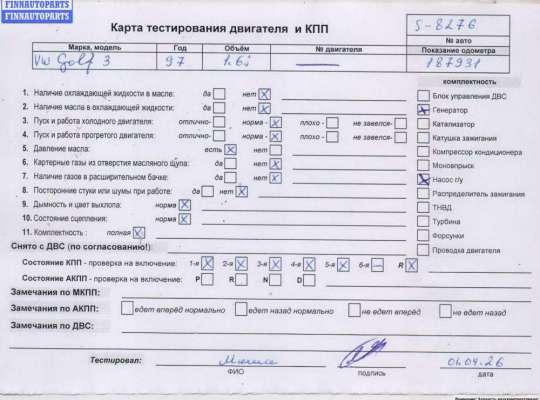 FINNAUTOPARTS
FINNAUTOPARTS
Карта тестирования двигателя и КПП
5-8276
№ авто
Марка, модель Год Объём № двигателя Показание одометра
VW Golf 3 97 1.6i — 187931
комплектность
1. Наличие охлаждающей жидкости в масле: да нет X
2. Наличие масла в охлаждающей жидкости: да нет X
3. Пуск и работа холодного двигателя: отлично- норма - X плохо - не завелся-
4. Пуск и работа прогретого двигателя: отлично- норма - X плохо - не завелся-
5. Давление масла: есть X нет
6. Картерные газы из отверстия масляного щупа: да нет X
7. Наличие газов в расширительном бачке: да нет X
8. Посторонние стуки или шумы при работе: да нет X
9. Дымность и цвет выхлопа: норма X
10. Состояние сцепления: норма X
11. Комплектность : полная X
Блок управления ДВС
X Генератор
Катализатор
Катушка зажигания
Компрессор кондиционера
Моновпрыск
X Насос г/у
Распределитель зажигания
ТНВД
Турбина
Форсунки
Проводка двигателя
Снято с ДВС (по согласованию!):
Состояние КПП - проверка на включение: 1-я X 2-я X 3-я X 4-я X 5-я X 6-я — R X
Состояние АКПП - проверка на включение: P R N D
Замечания по МКПП:
Замечания по АКПП: едет вперёд нормально едет назад нормально не едет вперед не едет назад
Замечания по ДВС:
Тестировал:
ФИО подпись дата
01.04.26